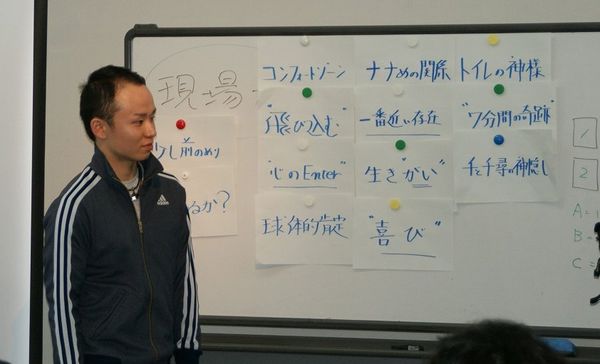 現場
コンフォートゾーン
ナナめの関係
トイレの神様
"飛び込む"
一番近い存在
"7分間の奇跡"
少し前のめり
"心のEnter"
生き"がい"
千と千尋の神隠し
るか?
球体的肯定
"喜び"
adidas
1
2
A=
B=
C=